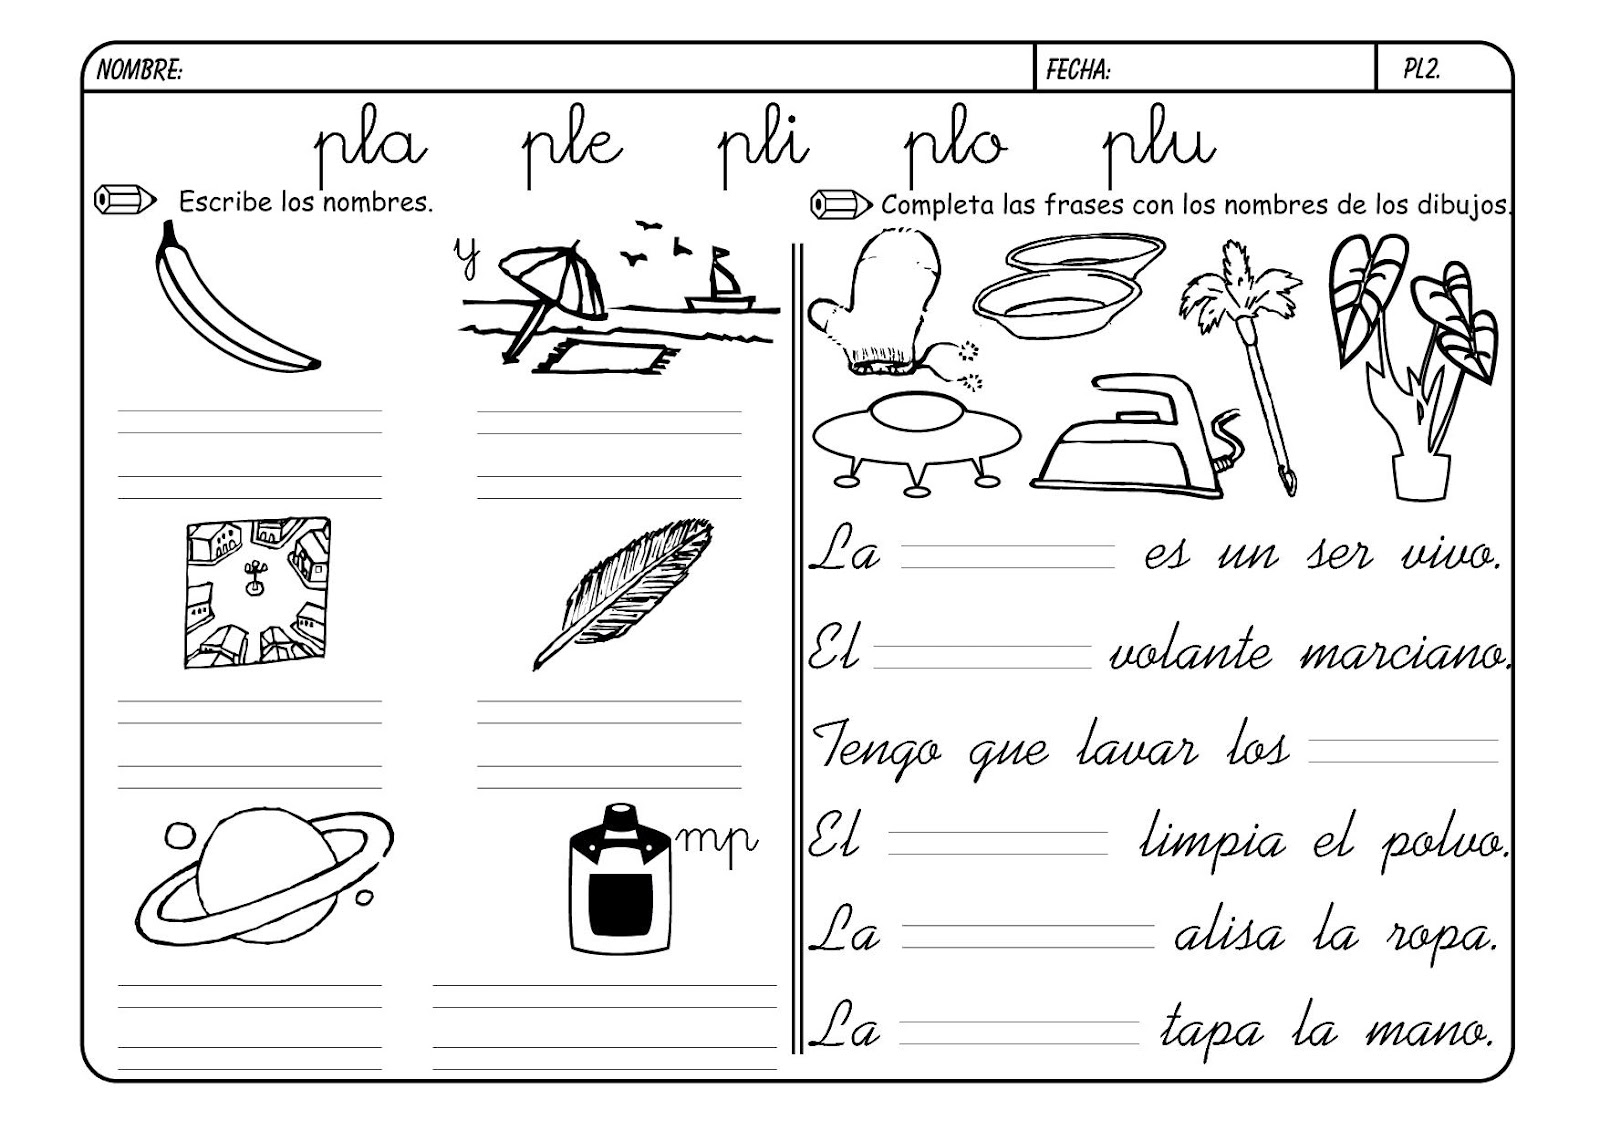 NOMBRE: FECHA: PL2.
pla ple pli plo plu
Escribe los nombres.
y
mp
Completa las frases con los nombres de los dibujos.
La es un ser vivo.
El volante marciano.
Tengo que lavar los
El limpia el polvo.
La alisa la ropa.
La tapa la mano.